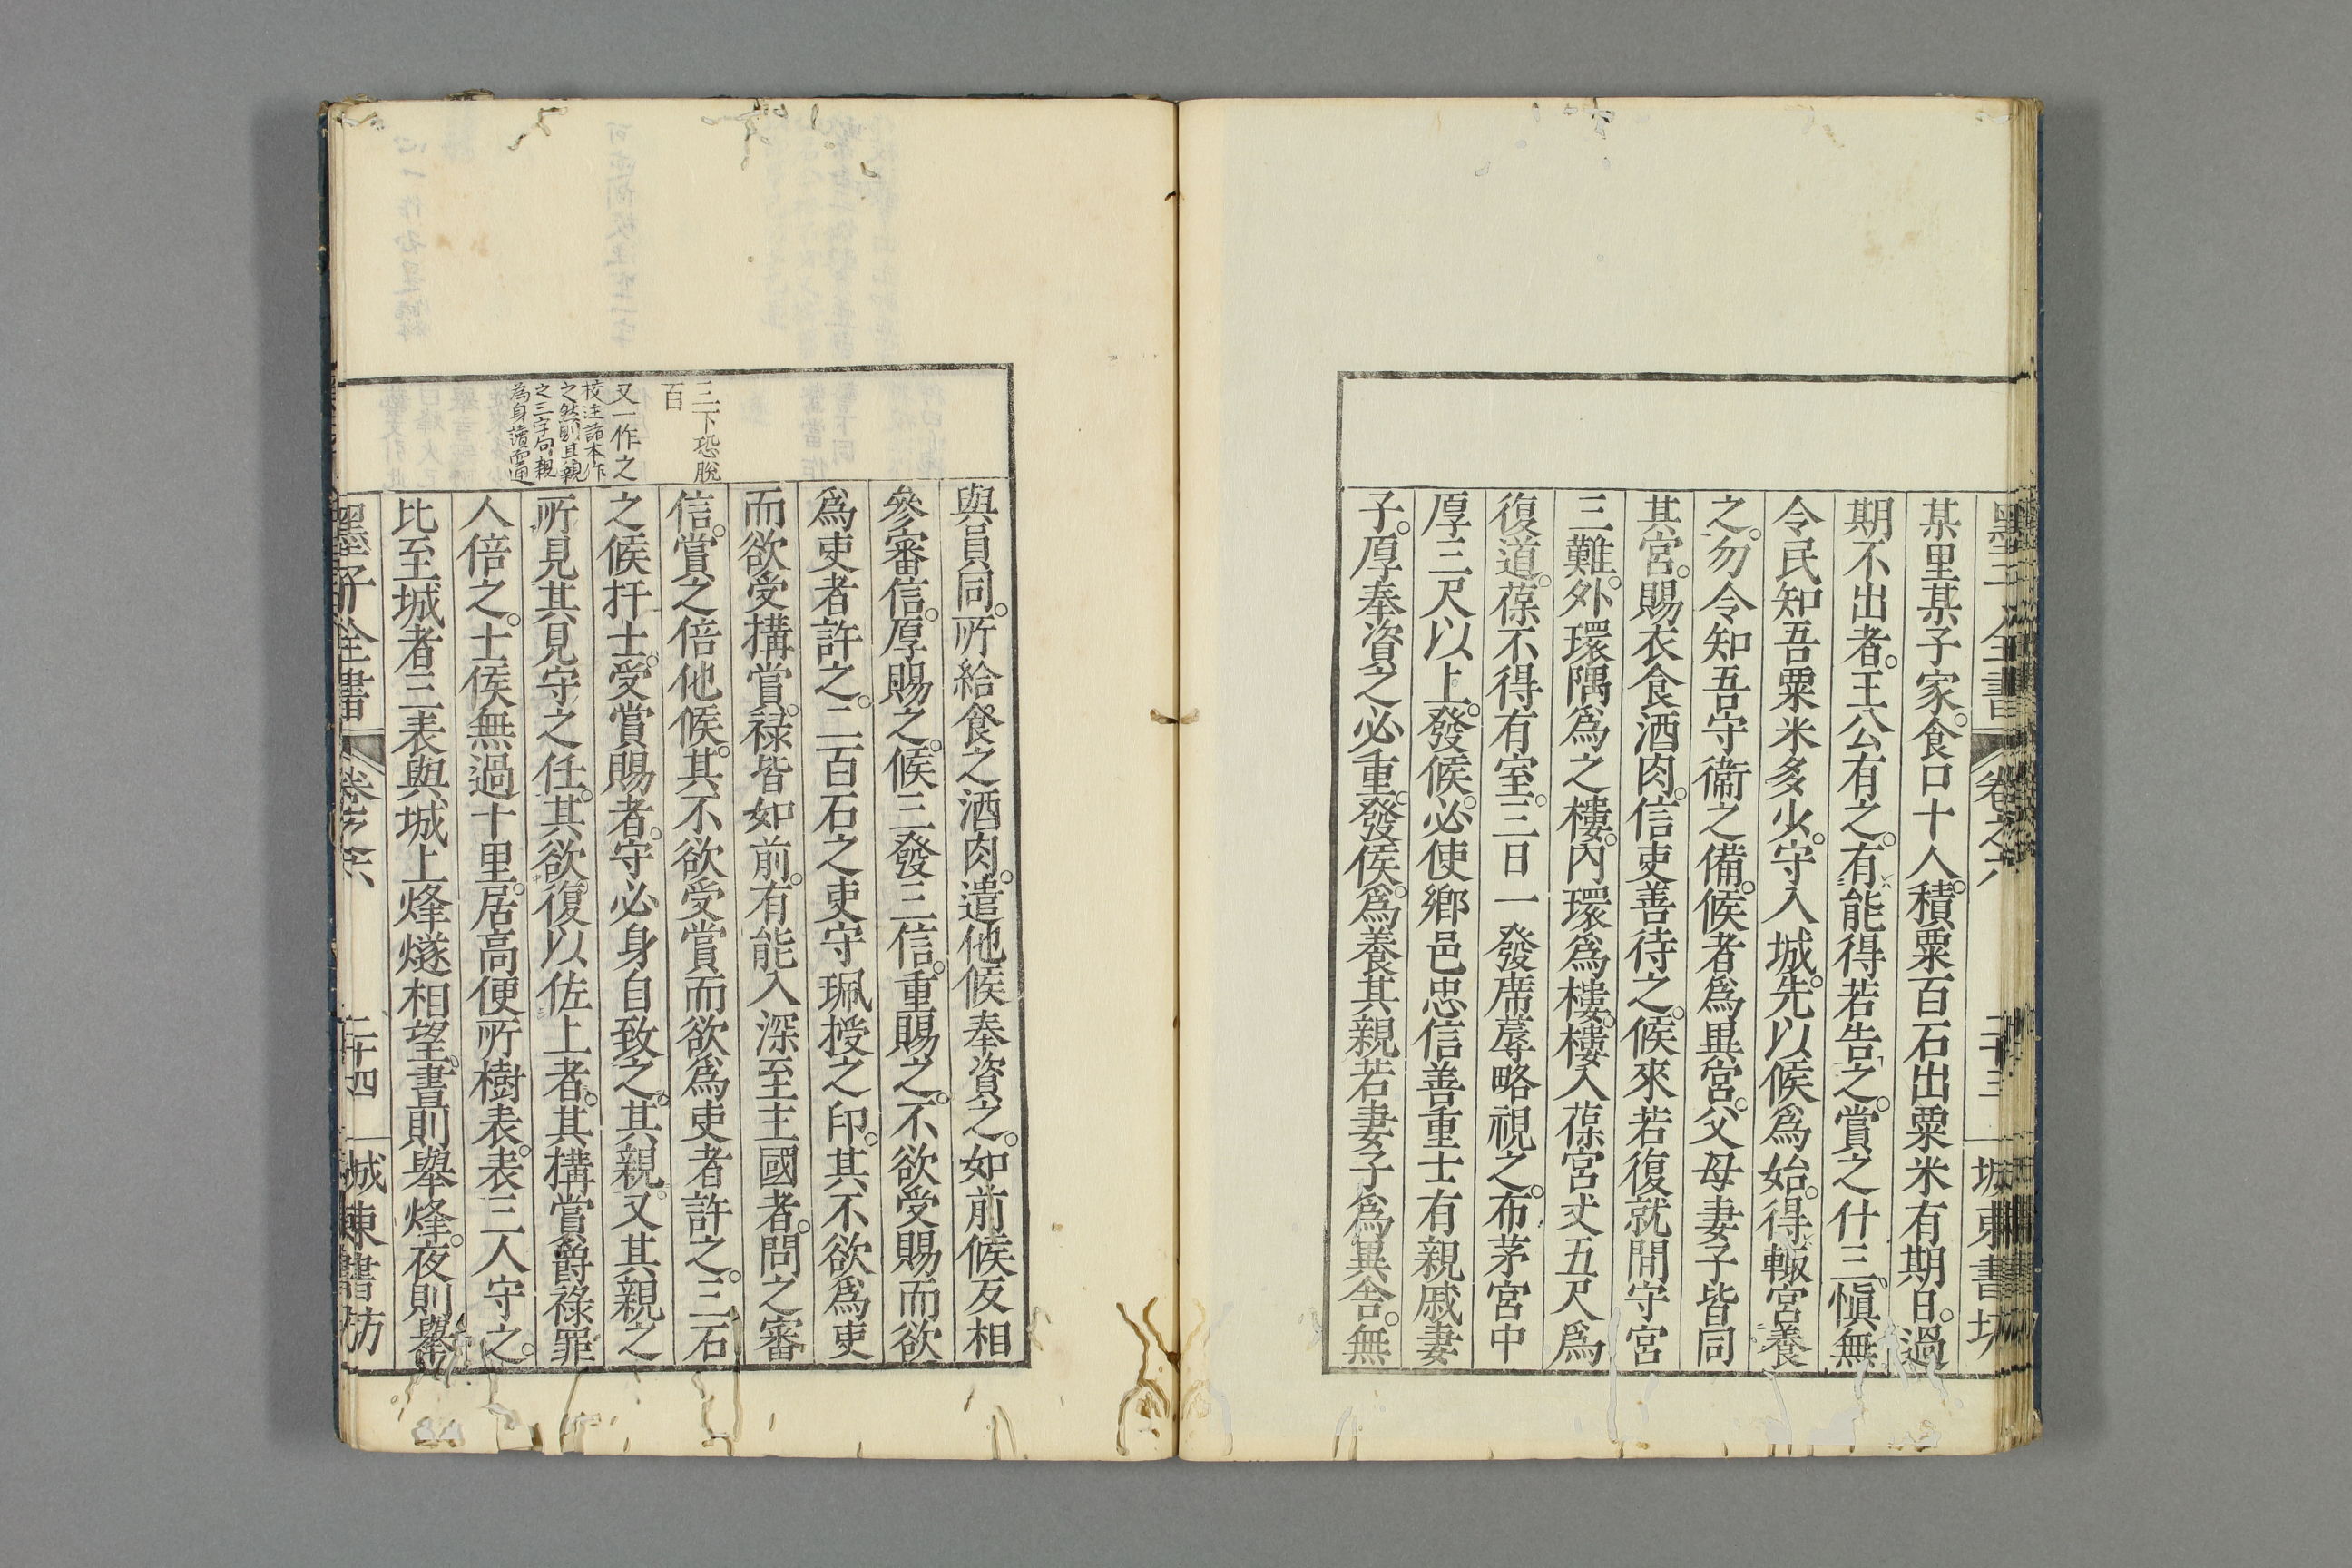 墨子全書　卷之六　二十三　城東書坊
某里某子家。食口十人。積粟百石出粟米有期日。過
期不出者。王公有之。有能得若告之。賞之什三。愼無
令民知吾粟米多少。守入城。先以候爲始。得輒宮養
之。勿令知吾守衞之備。候者爲異宮。父母妻子皆同
其宮。賜衣食酒肉。信吏善待之。候來若復就間守宮
三難。外環隅爲之樓。內環爲樓。樓入葆宮丈五尺爲
復道。葆不得有室。三日一發席蓐略視之。布茅宮中
厚三尺以上。發候。必使鄕邑忠信善重士有親戚妻
子。厚奉資之必重。發侯。爲養其親若妻子爲異舍。無
與員同。所給食之酒肉。遣他候奉資之。如前候反相
參審信。厚賜之。候三發三信。重賜之。不欲受賜而欲
爲吏者許之。二百石之吏守珮授之印。其不欲爲吏
而欲受搆賞。禄皆如前。有能入深至主國者。問之審
信。賞之倍他候。其不欲受賞而欲爲吏者許之。三石
之候扞士。受賞賜者。守必身自致之。其親。又其親之
所見其見守之任。其欲復以佐上者。其搆賞爵祿罪
人倍之。士侯無過十里。居高便所樹表。表三人守之。
比至城者三表與城上烽燧相望。晝則舉烽。夜則舉
三下恐脫
百
又一作之
校注諸本作
之然則其親
之三字句親
為身讀而通
墨子全書　卷之六　二十四　城東書坊